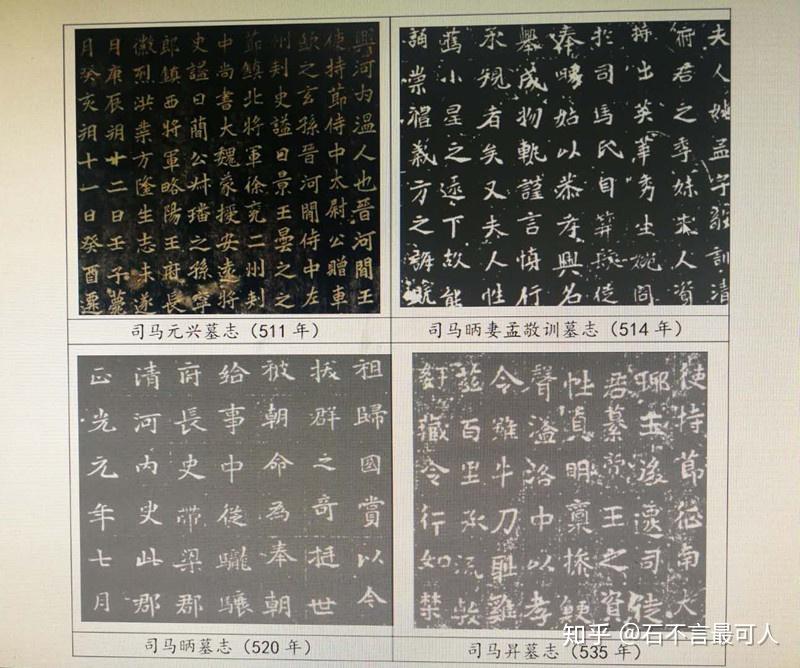 興河内溫人也晉河間王
使持節侍中太尉公贈車
欽之玄孫晉河間侍中左
州刾史謚曰景王曇之之
鎮北將軍徐兗二州刾
中尚書大魏蒙授安遠將
史謚曰簡公璠之孫寧
郎鎮西將軍略陽王府長
徽烈洪業方隆生志未遂
日庚辰朔廿二日壬子薨
月癸亥朔十一日癸酉
司马元兴墓志（511 年）
夫人姓孟字敬訓清
府君之季妹夫人資
出英華秀生婉問
於司馬氏自笄從
奉姑以恭孝興名
舉成物軌謹言慎行
永規者矣又夫人性
小星之逮下故能
誦崇禮義方之
司马昞妻孟敬训墓志（514 年）
祖歸國賞以今
拔群之奇挺世
被朝命為奉朝
給事中從驪驤
府長史帶梁郡
清河内史此郡
正光元年七月
司马昞墓志（520 年）
使持節征南大
王後遷司徒
君纂帝王之資
性真明稟操
聲溢洛中以孝
令雖牛刀耻雞
茲百里承流
令行如禁
司马昇墓志（535 年）
知乎 @石不言最可人